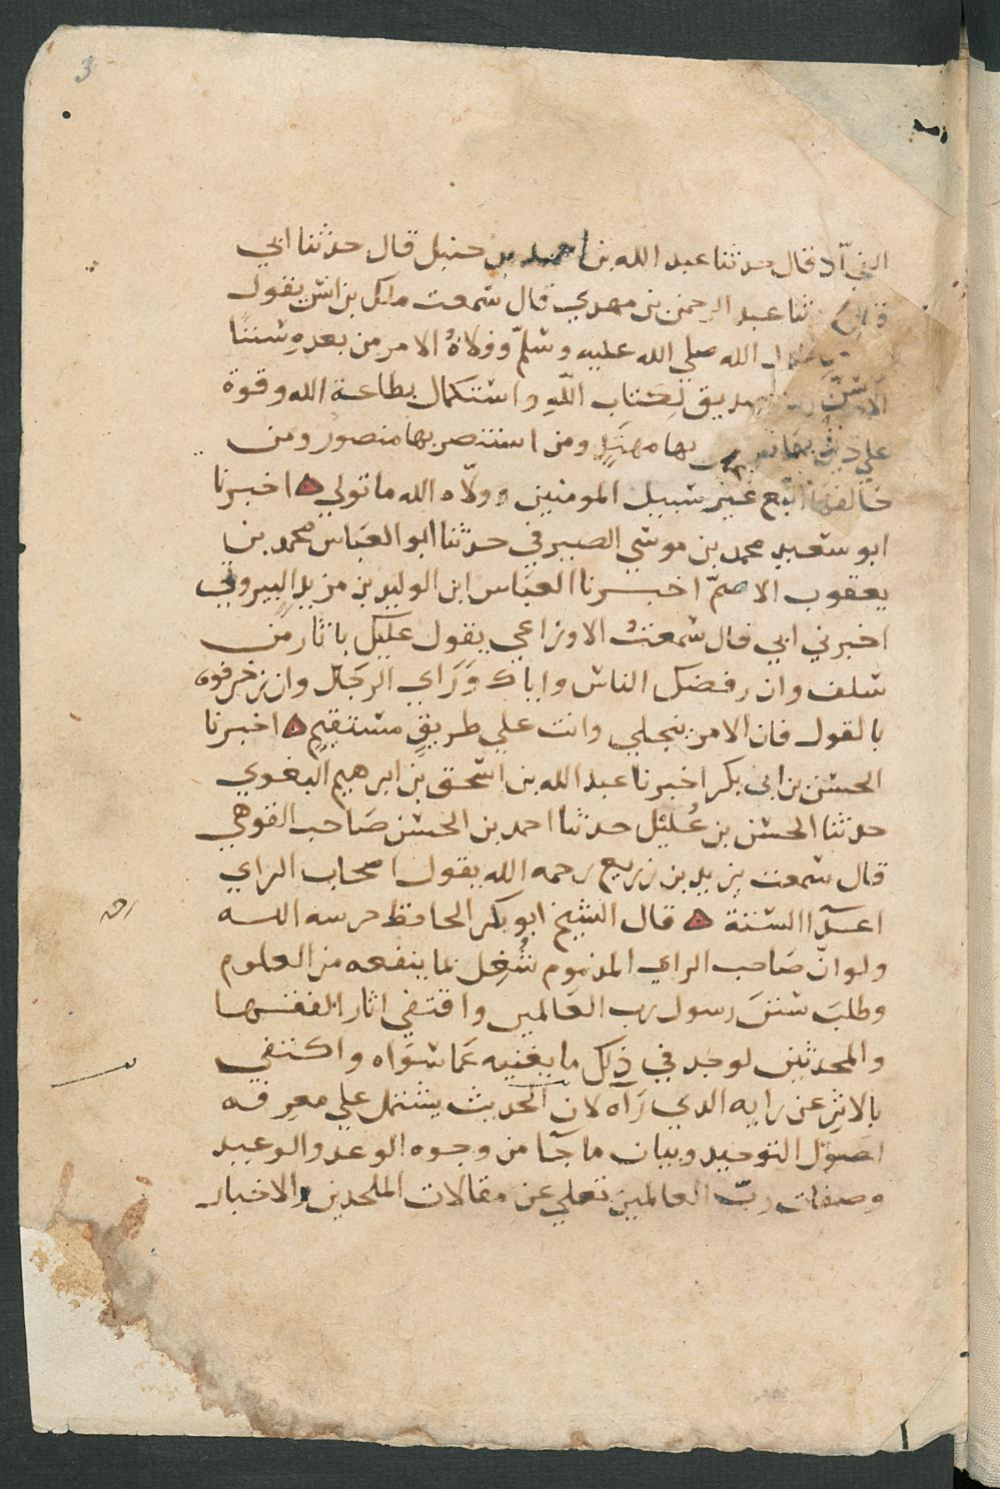 3
قال حدثنا عبد الله بن احمد بن حنبل قال حدثنا ابي
ثنا عبد الرحمن بن مهدي قال سمعت مالك بن انس يقول
الله صلي الله عليه وسلّم وولاةُ الامر من بعدهِ سننًا
لكتاب اللّهِ واستكمال بطاعة الله وقوة
علي بها مهتدٍ ومن استنصر بها منصور ومن
خالفها اتّبع غير سبيل المومنين وولّاه الله ما تولي ه اخبرنا
ابو سعيد محمد بن موسي الصيرفي حدثنا ابو العبّاس محمد بن
يعقوب الاصمّ اخبرنا العبّاس ابن الوليد بن مزيدٍ البيروتي
اخبرني ابي قال سمعتُ الاوزاعي يقول عليك باثار من
سلف وان رفضك الناس واياك وَرَاي الرجَال وان زخرفوه
بالقول فان الامر ينجلي وانت علي طريقٍ مستقيمٍ ه اخبرنا
الحسن بن ابي بكر اخبرنا عبد الله بن اسحق بن ابرهيم البغوي
حدثنا الحسن بن عُليل حدثنا احمد بن الحسن صَاحب القوهي
قال سمعت يزيد بن زريع رحمه الله يقول اصحاب الراي
اعدآ السنة ه قال الشيخ ابو بكر الحافظ حرسه الله
ولو انّ صَاحب الراي المذموم شُغِل بما ينفعه من العلوم
وطلبَ سننَ رسول رب العَالمين واقتفي اثار الفقها
والمحدثين لوجد في ذلك ما يغنيه عَما سوَاه واكتفي
بالاثرِ عن رايه الذي رَآه لان الحديث يشتمل علي معرفه
اصَول التوحيد وبيان ما جآ من وجوه الوعد والوعيد
وصفات ربّ العالمين تعلي عن مقالات الملحدين والاخبار